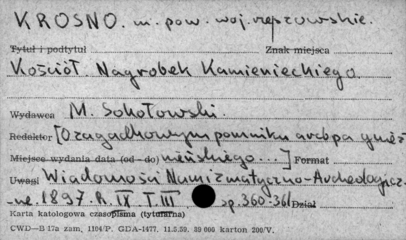 KROSNO. m. pow. woj. rzeszowskie.
Tytuł i podtytuł Znak miejsca
Kościół. Nagrobek Kamienieckiego.
Wydawca M. Sokołowski.
Redaktor [O zagadkowym pomniku arcbpa gnieź-
Miejsce wydania data (od - do) nieńskiego...] Format
Uwagi Wiadomości Numizmatyczno-Archeologicz-
-ne. 1897. R. IX. T. III sp. 360-361 Dział
Karta katalogowa czasopisma (tytularna)
CWD—B 17a zam. 1104/P. GDA-1477. 11.5.59. 39 000 karton 200/V.